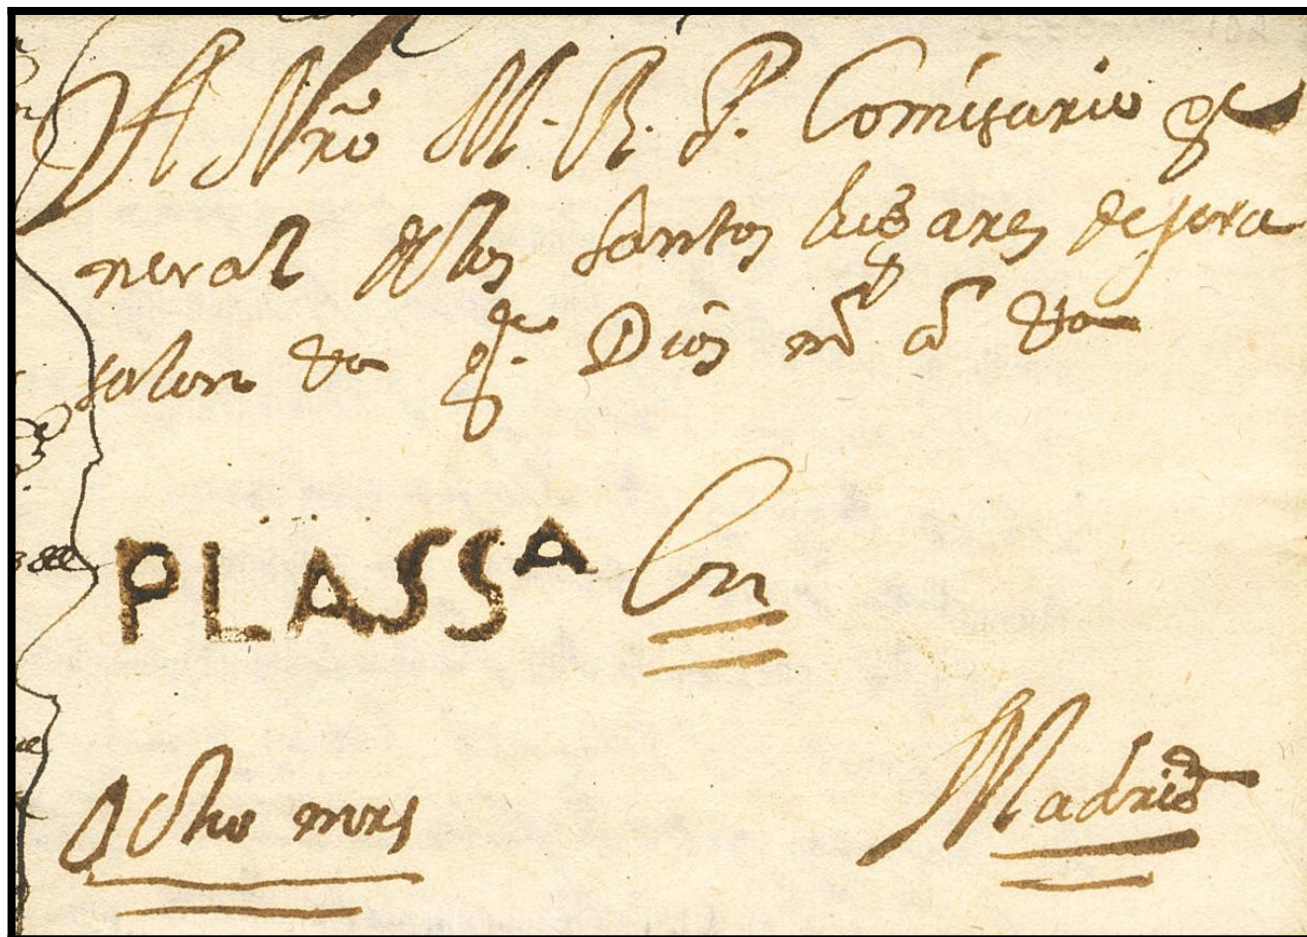 A Nr̃o M. R. P. Comisario ge
neral de los Santos lugares de jeru
salen &a q.e Dios m.s a.s &a
PLASSA En
Ocho mrs
Madrid